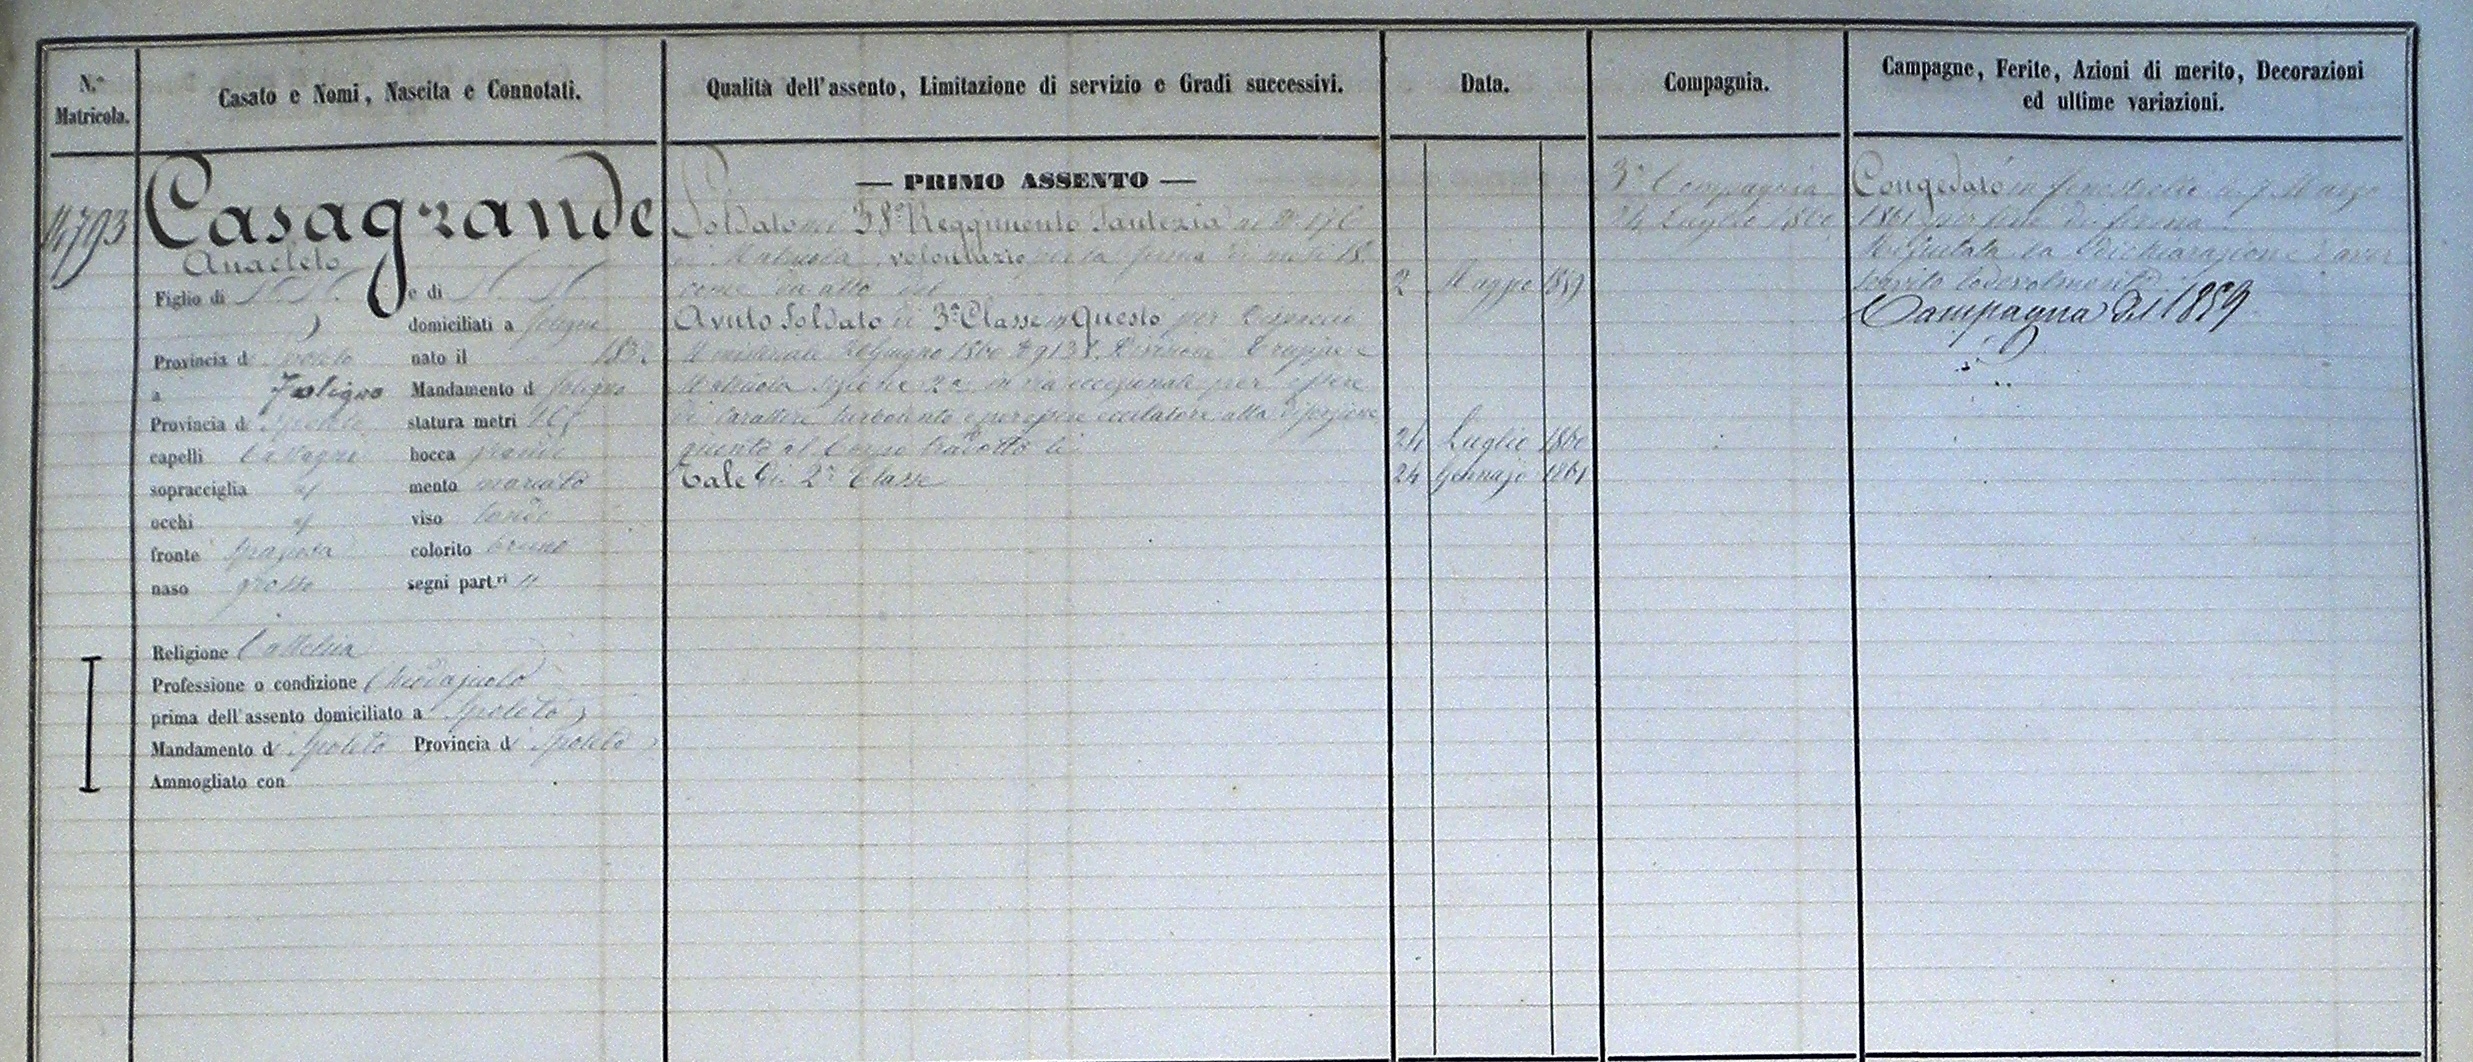 N.º Matricola.
Casato e Nomi, Nascita e Connotati.
Qualità dell'assento, Limitazione di servizio e Gradi successivi.
Data.
Compagnia.
Campagne, Ferite, Azioni di merito, Decorazioni
ed ultime variazioni.
14793
Casagrande
Anacleto
Figlio di N. N. e di N. N.
domiciliati a Foligno
Provincia di Spoleto nato il 1832
a Foligno Mandamento di Foligno
Provincia di Spoleto statura metri
capelli castagni bocca grande
sopracciglia id mento marcato
occhi id viso tondo
fronte spaziosa colorito bruno
naso grosso segni part.ri "
Religione Cattolica
Professione o condizione Chiodajuolo
prima dell'assento domiciliato a Spoleto
Mandamento di Spoleto Provincia di Spoleto
Ammogliato con
— PRIMO ASSENTO —
Soldato nel 38º Reggimento Fanteria al Nº 176
di Matricola volontario per la ferma di mesi 18
come da atto del 2 Maggio 1859
Avuto Soldato di 3ª Classe in Questo per Dispaccio
Ministeriale Giugno 1860 Nº 9138 Divisione
Matricola Sezione 2ª in via eccezionale per essere
di carattere turbolento e per essere eccitatore alla diserzione
giunto al Corpo tradotto li 24 Luglio 1860
Tale di 2ª Classe 24 Gennajo 1861
3ª Compagnia
24 Luglio 1860
Congedato in Fenestrelle li 7 Marzo
1861 per fine di ferma
Rifiutata la Dichiarazione d'aver
servito lodevolmente
Campagna del 1859